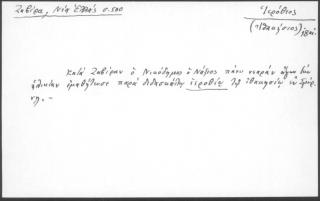 Ζαβίρα, Νέα Ἑλλάς σ. 500
Ἱερόθεος
(Ἰθακήσιος) 18αι.
Κατά Ζαβίραν ὁ Νικόδημος ὁ Νάξιος πάνυ νεαράν ἄγων
ἡλικίαν ἐμαθήτευσε παρά διδασκάλῳ Ἱεροθέῳ τῷ Ἰθακησίῳ ἐν Σμύρ
νῃ. –